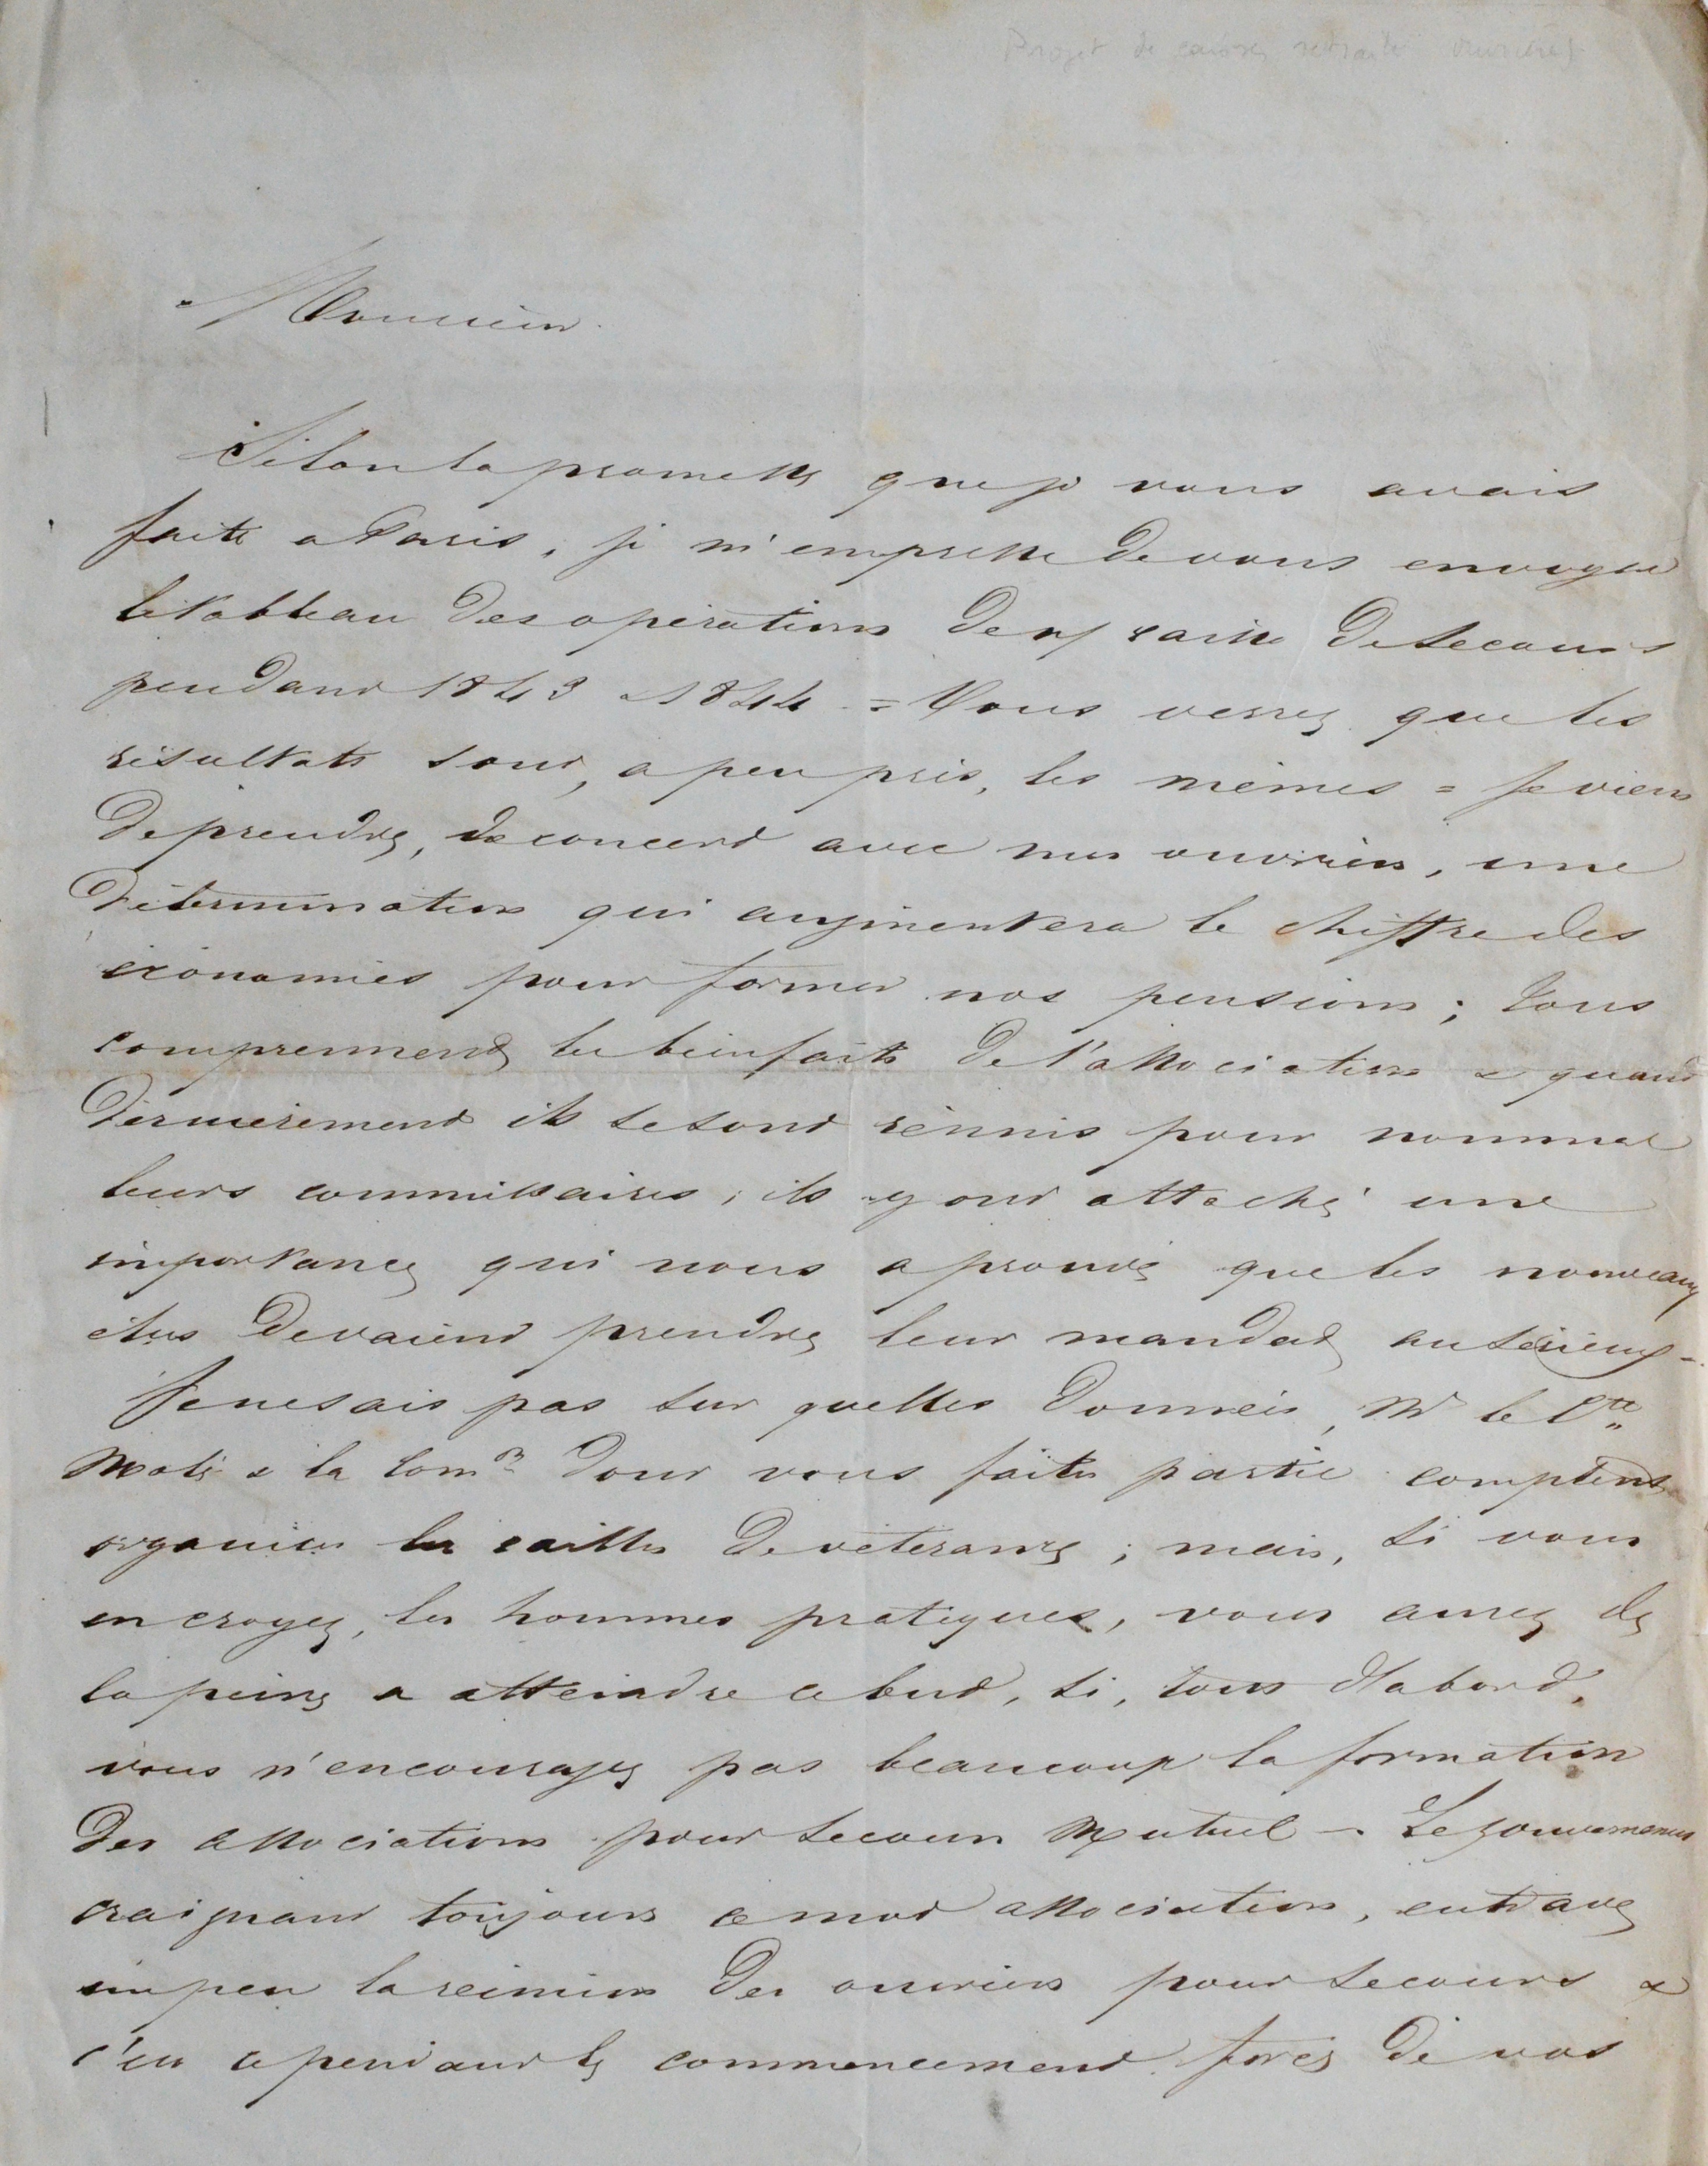 Projet de caisses retraites ouvrières
Monsieur.
Selon la promesse que je vous avais
faite a Paris, je m'empresse de vous envoyer
le tableau des opérations de n/ caisse de secours
pendant 1843 & 1844 = Vous verrez que les
résultats sont, a peu près, les mêmes = Je viens
de prendre, de concert avec nos ouvriers, une
détermination qui augmentera le chiffre des
économies pour former nos pensions ; tous
comprennent les bienfaits de l'association & quand
dernièrement ils se sont réunis pour nommer
leurs commissaires, ils y ont attaché une
importance qui nous a prouvé que les nouveaux
élus devaient prendre leur mandat au sérieux =
Je ne sais pas sur quelles données, Mr le Cte
Molé & la Comon dont vous faites partie comptent
organiser les caisses de vétérance ; mais, si vous
en croyez, les hommes pratiques, vous aurez de
la peine a atteindre ce but, si, tout d'abord,
vous n'encouragez pas beaucoup la formation
des associations pour secours mutuel - Le gouvernement
craignant toujours ce mot association, entrave
un peu la réunion des ouvriers pour secours &
c'est cependant le commencement forcé de vos